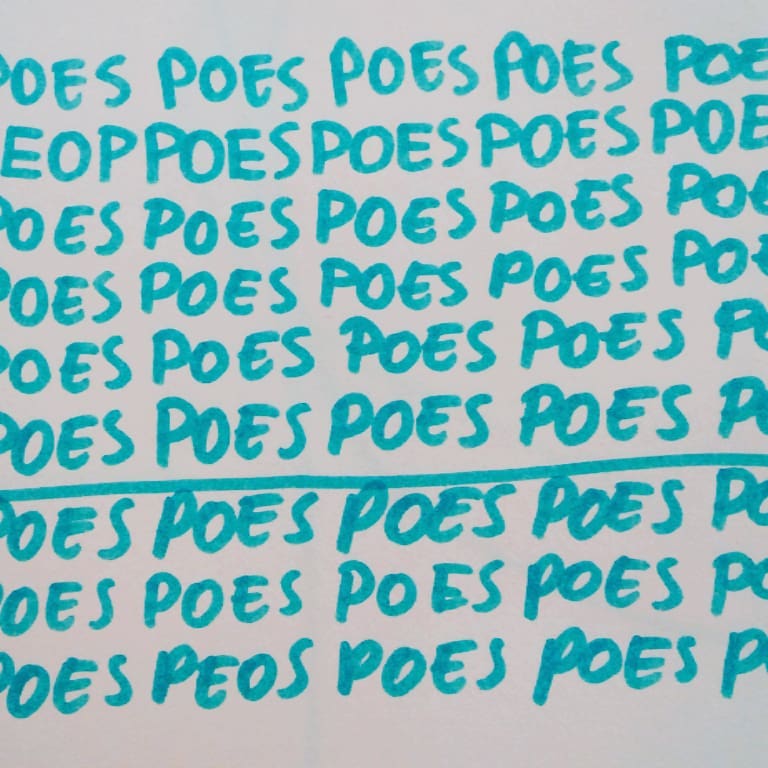 POES POES POES POES POE
EOP POES POES POES POE
POES POES POES POES POE
POES POES POES POES POE
POES POES POES POES PO
POES POES POES POES PO
POES POES POES POES PO
POES POES POES POES PO
POES PEOS POES POES P